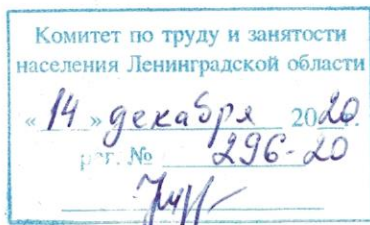 Комитет по труду и занятости
населения Ленинградской области
«14» декабря 2020г.
рег. № 296-20